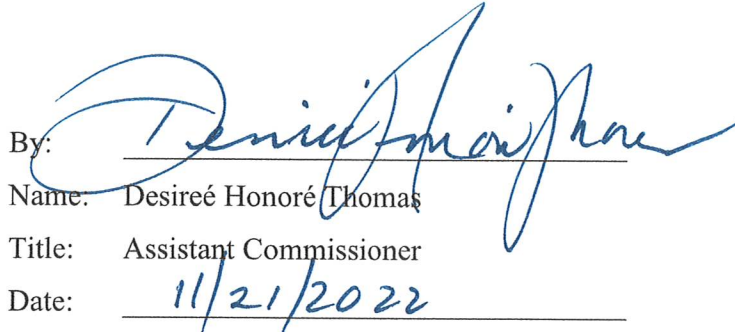 By: Desireé Honoré Thomas
Name: Desireé Honoré Thomas
Title: Assistant Commissioner
Date: 11/21/2022